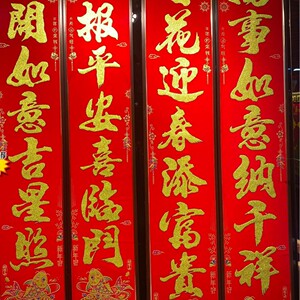 事如意納千祥
花迎春添富貴
报平安喜臨門
開如意吉星照